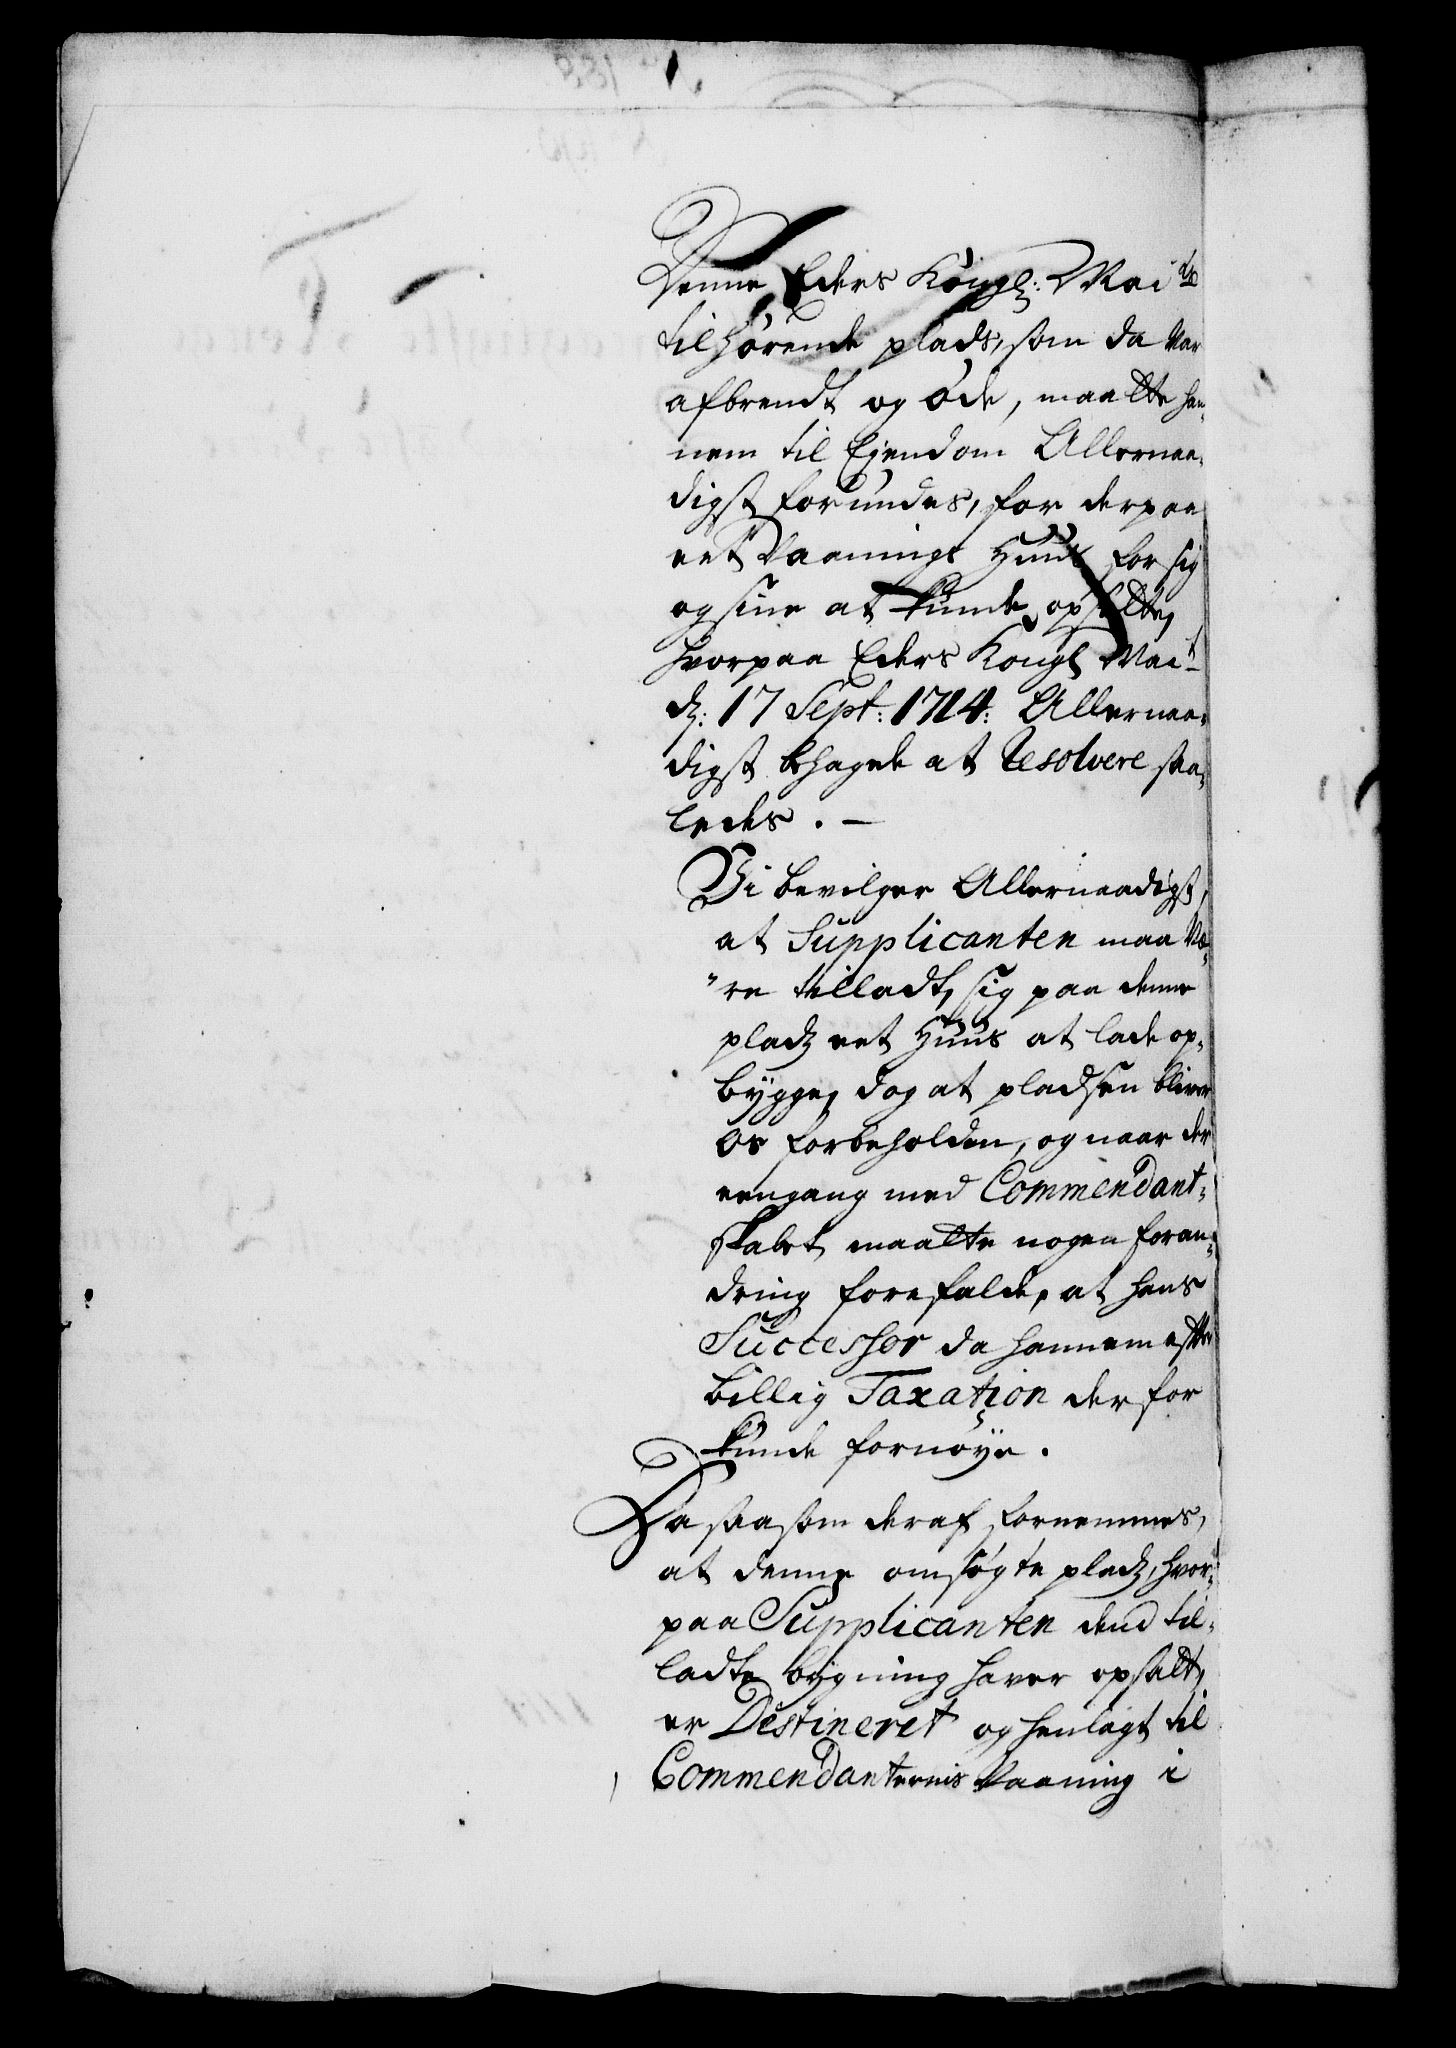 Denne Eders Kongl: Mai<sup>ts</sup>
tilhørende plads, som da var
afbrendt og øde, maatte han-
nem til Ejendom Allernaa-
digst forundes, for derpaa
eet Vaanings Huus for sig
og sine at kunde opsette,
hvorpaa Eders Kongl Mai<sup>t</sup>
d: 17 Sept: 1714: Allernaa-
digst behagede at Resolvere saa-
ledes. —
Vi bevilger Allernaadigst,
at Supplicanten maa væ-
re tilladt, sig paa denne
pladz eet Huus at lade op-
bygge, dog at pladsen bliver
Os forbeholden, og naar der
eengang med Commendant-
skabet maatte nogen foran-
dring forefalde, at hans
Successor da hannem efter
billig Taxation der for
kunde fornøye.
Da saasom deraf fornemmes,
at denne omsøgte pladz, hvor-
paa Supplicanten dend til-
ladte bygning haver opsatt,
er Destineret og henlagt til
Commendanternis Vaaning i